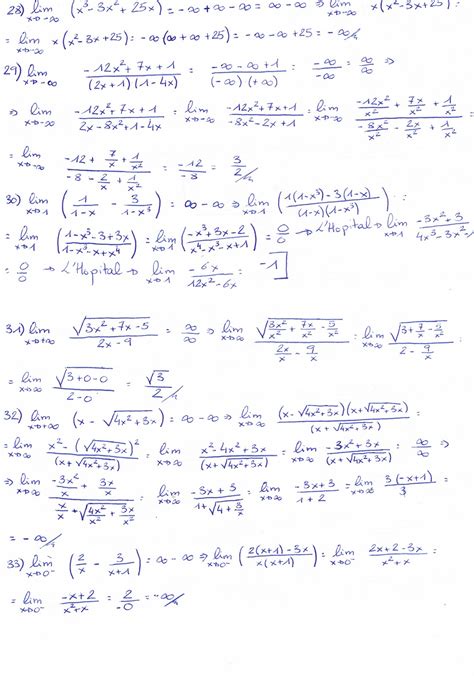 28) lim x→-∞ (x³-3x²+25x) = -∞+∞-∞ = ∞-∞ ⇒ lim x→-∞ x(x²-3x+25) :
= lim x→-∞ x(x²-3x+25) = -∞(∞+∞+25) = -∞-∞+25 = -∞
29) lim x→-∞ (-12x²+7x+1)/((2x+1)(1-4x)) = (-∞-∞+1)/((-∞)(+∞)) : -∞/-∞ = ∞/∞ ⇒
⇒ lim x→-∞ (-12x²+7x+1)/(2x-8x²+1-4x) = lim x→-∞ (-12x²+7x+1)/(-8x²-2x+1) = lim x→-∞ (-12x²/x²+7x/x²+1/x²)/(-8x²/x²-2x/x²+1/x²) =
= lim x→-∞ (-12+7/x+1/x²)/(-8-2/x+1/x²) = -12/-8 = 3/2
30) lim x→1 (1/(1-x) - 3/(1-x³)) = ∞-∞ ⇒ lim x→1 (1(1-x³)-3(1-x))/((1-x)(1-x³)) :
= lim x→1 ((1-x³-3+3x)/(1-x³-x+x⁴)) = lim x→1 ((-x³+3x-2)/(x⁴-x³-x+1)) = 0/0 → L'Hopital → lim x→1 (-3x²+3)/(4x³-3x²-
= 0/0 → L'Hopital → lim x→1 -6x/(12x²-6x) = -1
31) lim x→+∞ √(3x²+7x-5)/(2x-9) = ∞/∞ ⇒ lim x→∞ √(3x²/x²+7x/x²-5/x²)/(2x/x-9/x) = lim x→∞ √(3+7/x-5/x²)/(2-9/x) :
= lim x→∞ √(3+0-0)/(2-0) = √3/2
32) lim x→∞ (x-√(4x²+3x)) = ∞-∞ ⇒ lim x→∞ (x-√(4x²+3x))(x+√(4x²+3x))/(x+√(4x²+3x)) :
= lim x→∞ (x²-(√(4x²+3x))²)/(x+√(4x²+3x)) = lim x→∞ (x²-4x²+3x)/(x+√(4x²+3x)) = lim x→∞ (-3x²+3x)/(x+√(4x²+3x)) = ∞/∞ ⇒
⇒ lim x→∞ (-3x²/x+3x/x)/(x/x+√(4x²/x²+3x/x²)) : lim x→∞ (-3x+3)/(1+√(4+3/x)) = lim x→∞ (-3x+3)/(1+2) = lim x→∞ 3(-x+1)/3 =
= -∞
33) lim x→0⁻ (2/x - 3/(x+1)) = ∞-∞ ⇒ lim x→0⁻ ((2(x+1)-3x)/(x(x+1))) = lim x→0⁻ (2x+2-3x)/(x²+x) :
= lim x→0⁻ (-x+2)/(x²+x) = 2/-0 = -∞